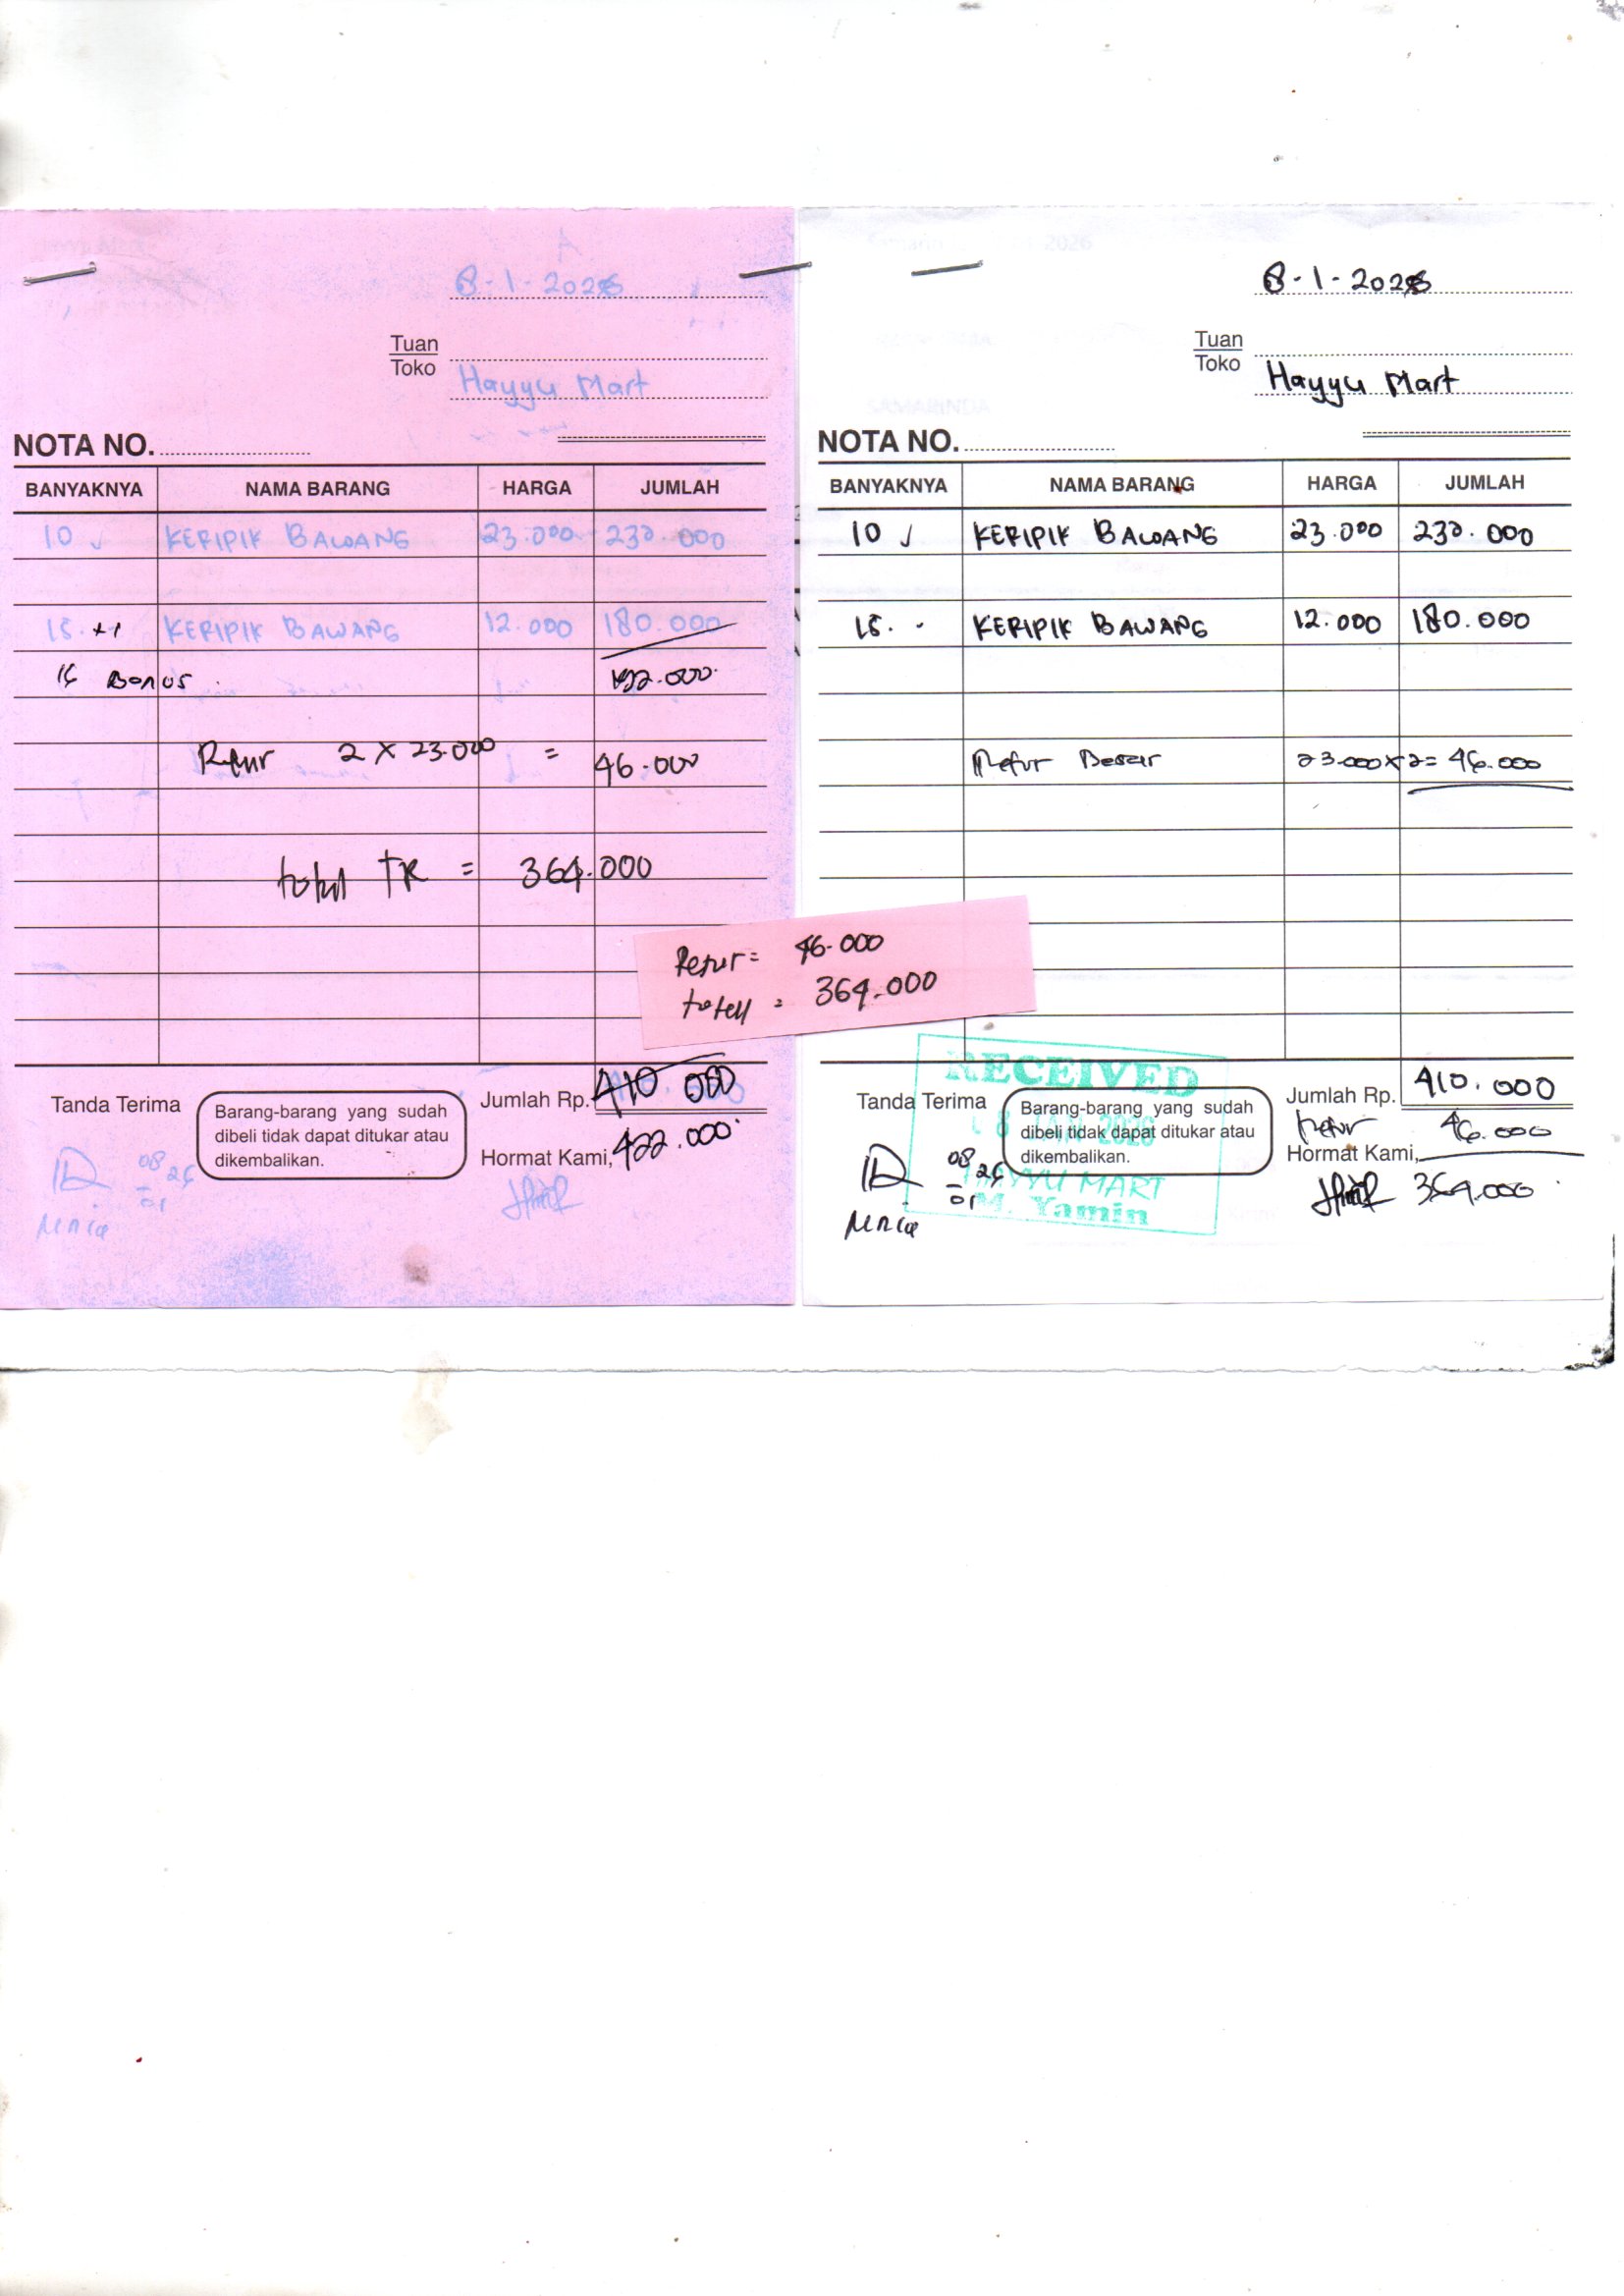 8-1-2026
Tuan
Toko
Hayyu Mart
NOTA NO.
BANYAKNYA NAMA BARANG HARGA JUMLAH
10 ✓ KERIPIK BAWANG 23.000 230.000
15 +1 KERIPIK BAWANG 12.000 180.000
16 Bonus 192.000
Retur 2 X 23.000 = 46.000
total TR = 364.000
Tanda Terima
Barang-barang yang sudah
dibeli tidak dapat ditukar atau
dikembalikan.
Jumlah Rp. 410 000
Hormat Kami, 422.000
08 26
01
Retur = 46.000
total = 364.000
8-1-2026
Tuan
Toko
Hayyu Mart
NOTA NO.
BANYAKNYA NAMA BARANG HARGA JUMLAH
10 ✓ KERIPIK BAWANG 23.000 230.000
15 KERIPIK BAWANG 12.000 180.000
Retur Besar 23.000 x 2 = 46.000
RECEIVED
08 JAN 2026
HAYYU MART
M. Yamin
Tanda Terima
Barang-barang yang sudah
dibeli tidak dapat ditukar atau
dikembalikan.
Jumlah Rp. 410.000
Retur 46.000
Hormat Kami,
364.000
08 26
01